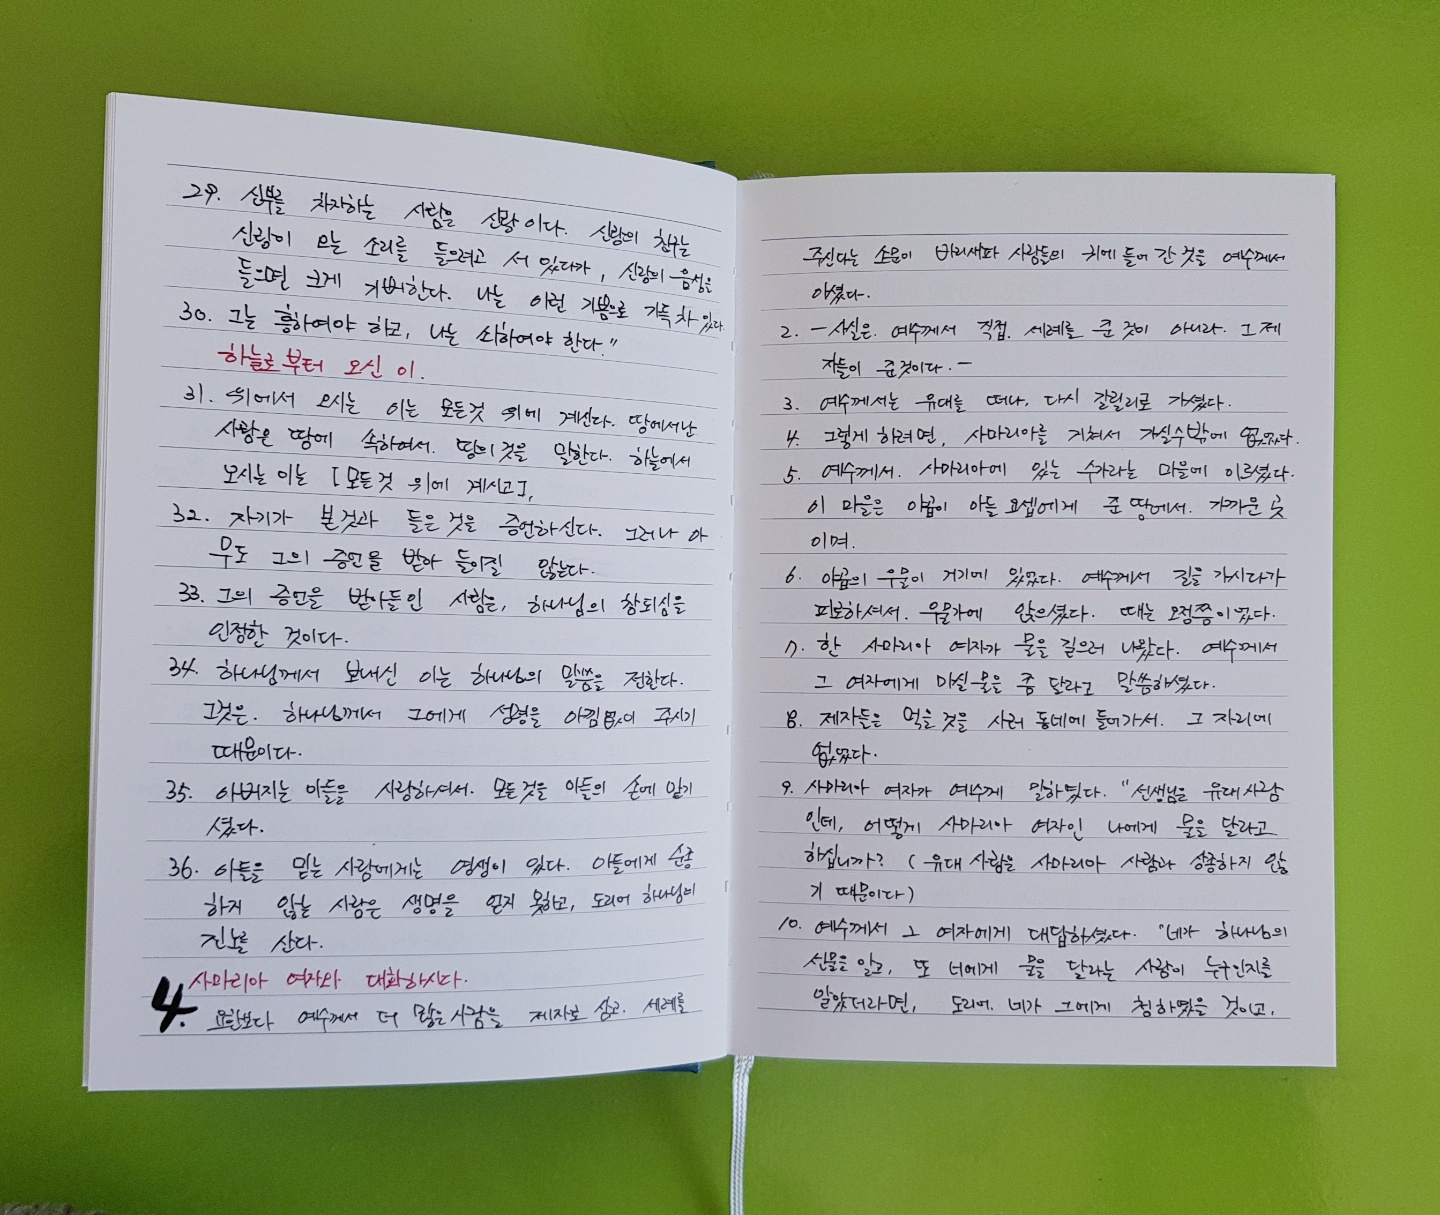 29. 신부를 차지하는 사람은 신랑이다. 신랑의 친구는
신랑이 오는 소리를 들으려고 서 있다가, 신랑의 음성을
들으면 크게 기뻐한다. 나는 이런 기쁨으로 가득 차 있다.
30. 그는 흥하여야 하고, 나는 쇠하여야 한다."
하늘로부터 오신 이.
31. 위에서 오시는 이는 모든것 위에 계신다. 땅에서난
사람은 땅에 속하여서. 땅의 것을 말한다. 하늘에서
오시는 이는 [모든것 위에 계시고],
32. 자기가 본것과 들은 것을 증언하신다. 그러나 아
무도 그의 증언을 받아 들이질 않는다.
33. 그의 증언을 받아들인 사람은, 하나님의 참되심을
인정한 것이다.
34. 하나님께서 보내신 이는 하나님의 말씀을 전한다.
그것은. 하나님께서 그에게 성령을 아낌없이 주시기
때문이다.
35. 아버지는 아들을 사랑하셔서. 모든것을 아들의 손에 맡기
셨다.
36. 아들을 믿는 사람에게는 영생이 있다. 아들에게 순종
하지 않는 사람은 생명을 얻지 못하고, 도리어 하나님의
진노를 산다.
사마리아 여자와 대화하시다.
4. 요한보다 예수께서 더 많은 사람을 제자로 삼고. 세례를
주신다는 소문이 바리새파 사람들의 귀에 들어 간 것을 예수께서
아셨다.
2. - 사실은. 예수께서 직접. 세례를 준 것이 아니라. 그 제
자들이 준것이다. -
3. 예수께서는 유대를 떠나, 다시 갈릴리로 가셨다.
4. 그렇게 하려면, 사마리아를 거쳐서 가실수밖에 없었다.
5. 예수께서. 사마리아에 있는 수가라는 마을에 이르셨다.
이 마을은 야곱이 아들 요셉에게 준 땅에서. 가까운 곳
이며.
6. 야곱의 우물이 거기에 있었다. 예수께서 길을 가시다가
피로하셔서. 우물가에 앉으셨다. 때는 오정쯤이었다.
7. 한 사마리아 여자가 물을 길으러 나왔다. 예수께서
그 여자에게 마실 물을 좀 달라고 말씀하셨다.
8. 제자들은 먹을 것을 사러 동네에 들어가서. 그 자리에
없었다.
9. 사마리아 여자가 예수께 말하였다. "선생님은 유대사람
인데, 어떻게 사마리아 여자인 나에게 물을 달라고
하십니까? (유대 사람은 사마리아 사람과 상종하지 않
기 때문이다)
10. 예수께서 그 여자에게 대답하셨다. "네가 하나님의
선물을 알고, 또 너에게 물을 달라는 사람이 누구인지를
알았더라면, 도리어. 네가 그에게 청하였을 것이고.